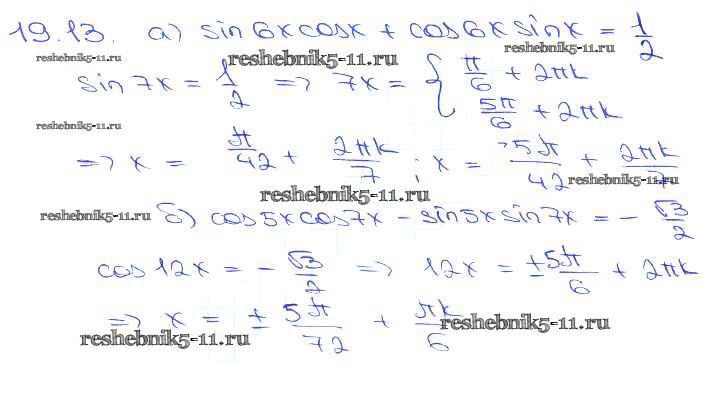 19.13. а) sin6xcosx + cos6xsinx = 1/2
reshebnik5-11.ru reshebnik5-11.ru reshebnik5-11.ru
sin7x = 1/2 => 7x = { π/6 + 2πk
5π/6 + 2πk
reshebnik5-11.ru
=> x = π/42 + 2πk/7 ; x = 5π/42 + 2πk/7
reshebnik5-11.ru reshebnik5-11.ru
reshebnik5-11.ru б) cos5xcos7x - sin5xsin7x = - √3/2
cos12x = - √3/2 => 12x = ± 5π/6 + 2πk
=> x = ± 5π/72 + πk/6
reshebnik5-11.ru reshebnik5-11.ru